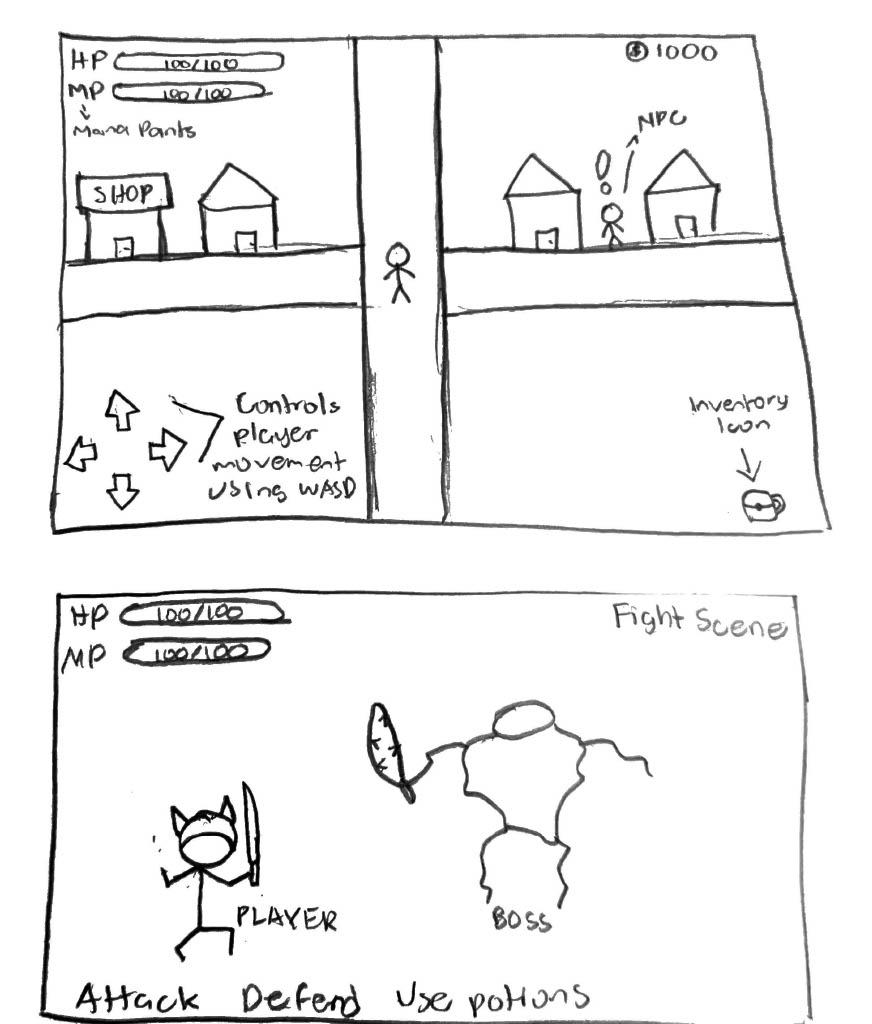 HP 100/100
MP 100/100
Mana Pants
$ 1000
NPC
!
SHOP
Controls
player
movement
using WASD
Inventory
Icon
HP 100/100
MP 100/100
Fight Scene
PLAYER
BOSS
Attack Defend Use potions